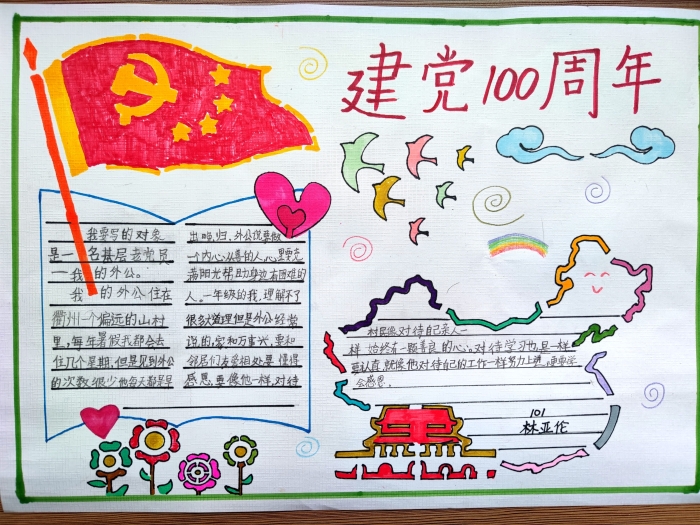 建党100周年
我要写的对象
是一名基层老党员
一我的外公。
我的外公住在
衢州一个偏远的山村
里,每年暑假我都会去
住几个星期,但是见到外公
的次数很少他每天都是早
出晚归,外公说要做
一个内心从善的人,心里充
满阳光帮助身边有困难的
人。一年级的我,理解不了
很多道理但是外公经常
说的,家和万事兴,要和
邻居们友爱相处要懂得
感恩,要像他一样,对待
村民像对待自己亲人一
样 始终有一颗善良的心。对待学习也是一样
要认真就像他对待自己的工作一样努力上进,更要学
会感恩.
101
林亚伦